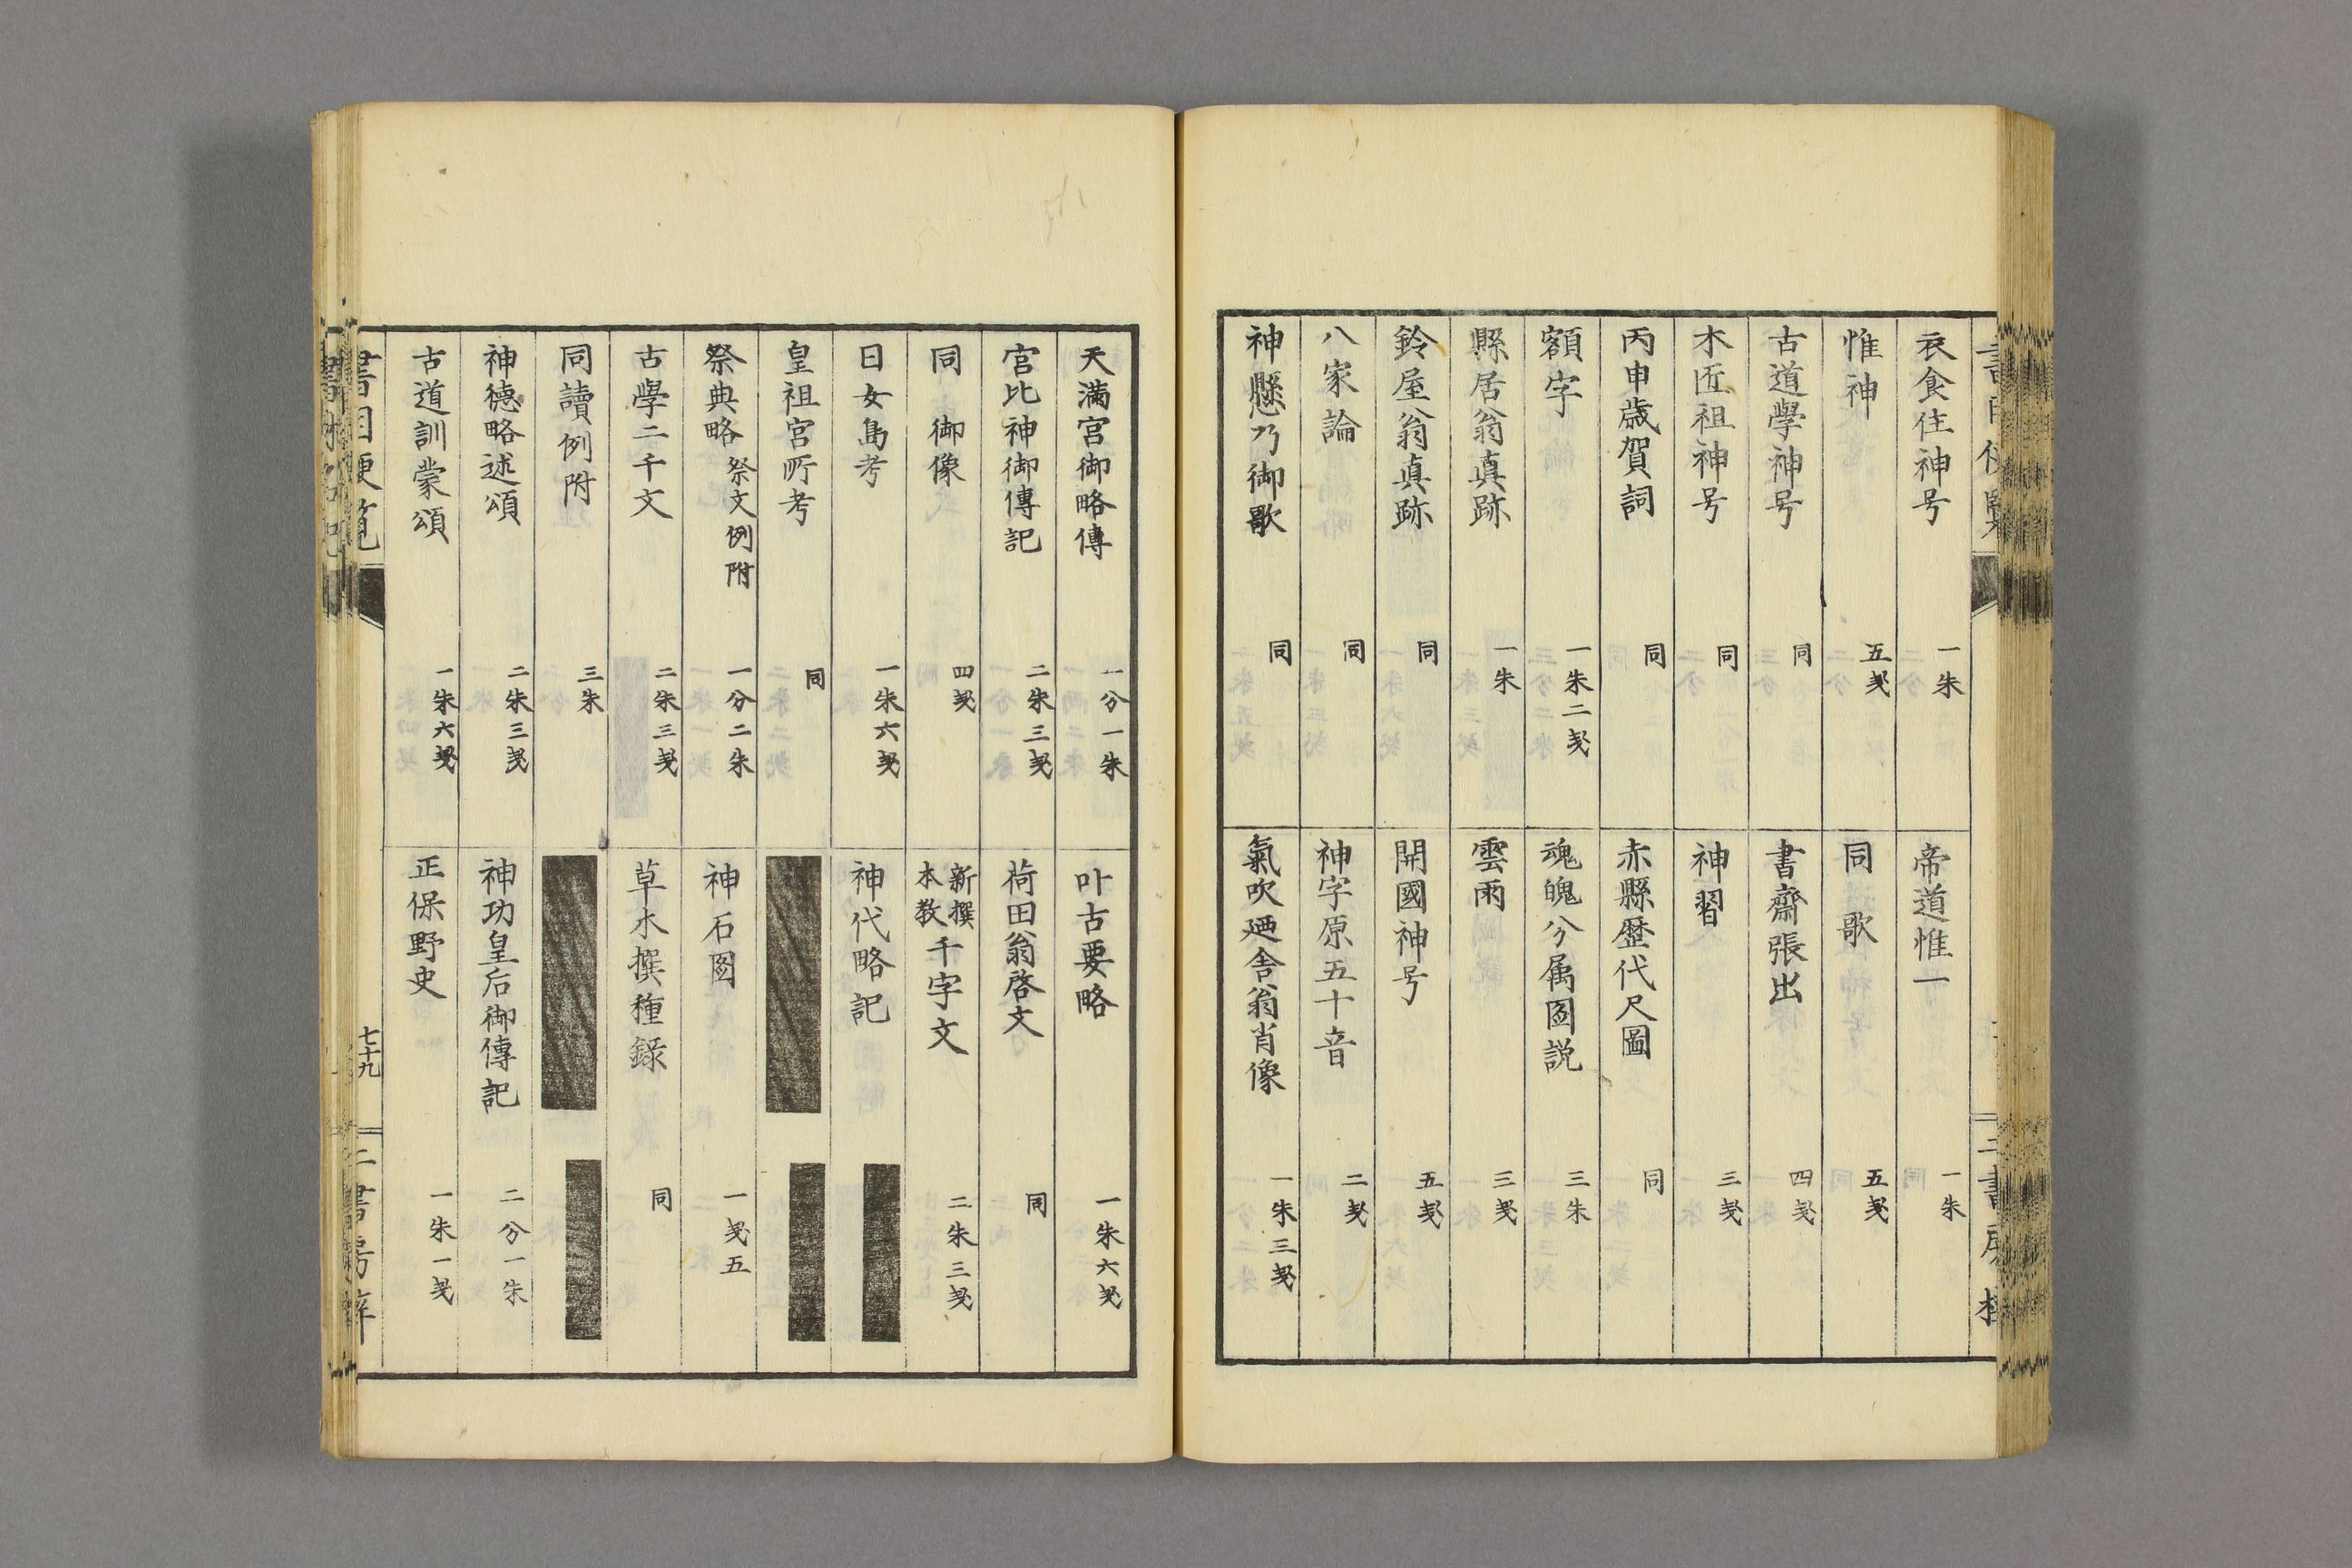 衣食住神号 一朱
惟神 五匁
古道學神号 同
木匠祖神号 同
丙申歳賀詞 同
額字 一朱二匁
縣居翁真跡 一朱
鈴屋翁真跡 同
八家論 同
神懸乃御歌 同
帝道惟一 一朱
同 歌 五匁
書齋張出 四匁
神習 三匁
赤縣歴代尺圖 同
魂魄分属図説 三朱
雲雨 三匁
開國神号 五匁
神字原五十音 二匁
氣吹廼舎翁肖像 一朱三匁
天満宮御略傳 一分一朱
宮比神御傳記 二朱三匁
同 御像 四匁
日女島考 一朱六匁
皇祖宮所考 同
祭典略 祭文例附 一分二朱
古學二千文 二朱三匁
同讀例附 三朱
神德略述頌 二朱三匁
古道訓蒙頌 一朱六匁
叶古要略 一朱六匁
荷田翁啓文 同
新撰本教千字文 二朱三匁
神代略記
神石図 一匁五
草木撰種錄 同
神功皇后御傳記 二分一朱
正保野史 一朱一匁
書目便覧
七十九
二書房梓